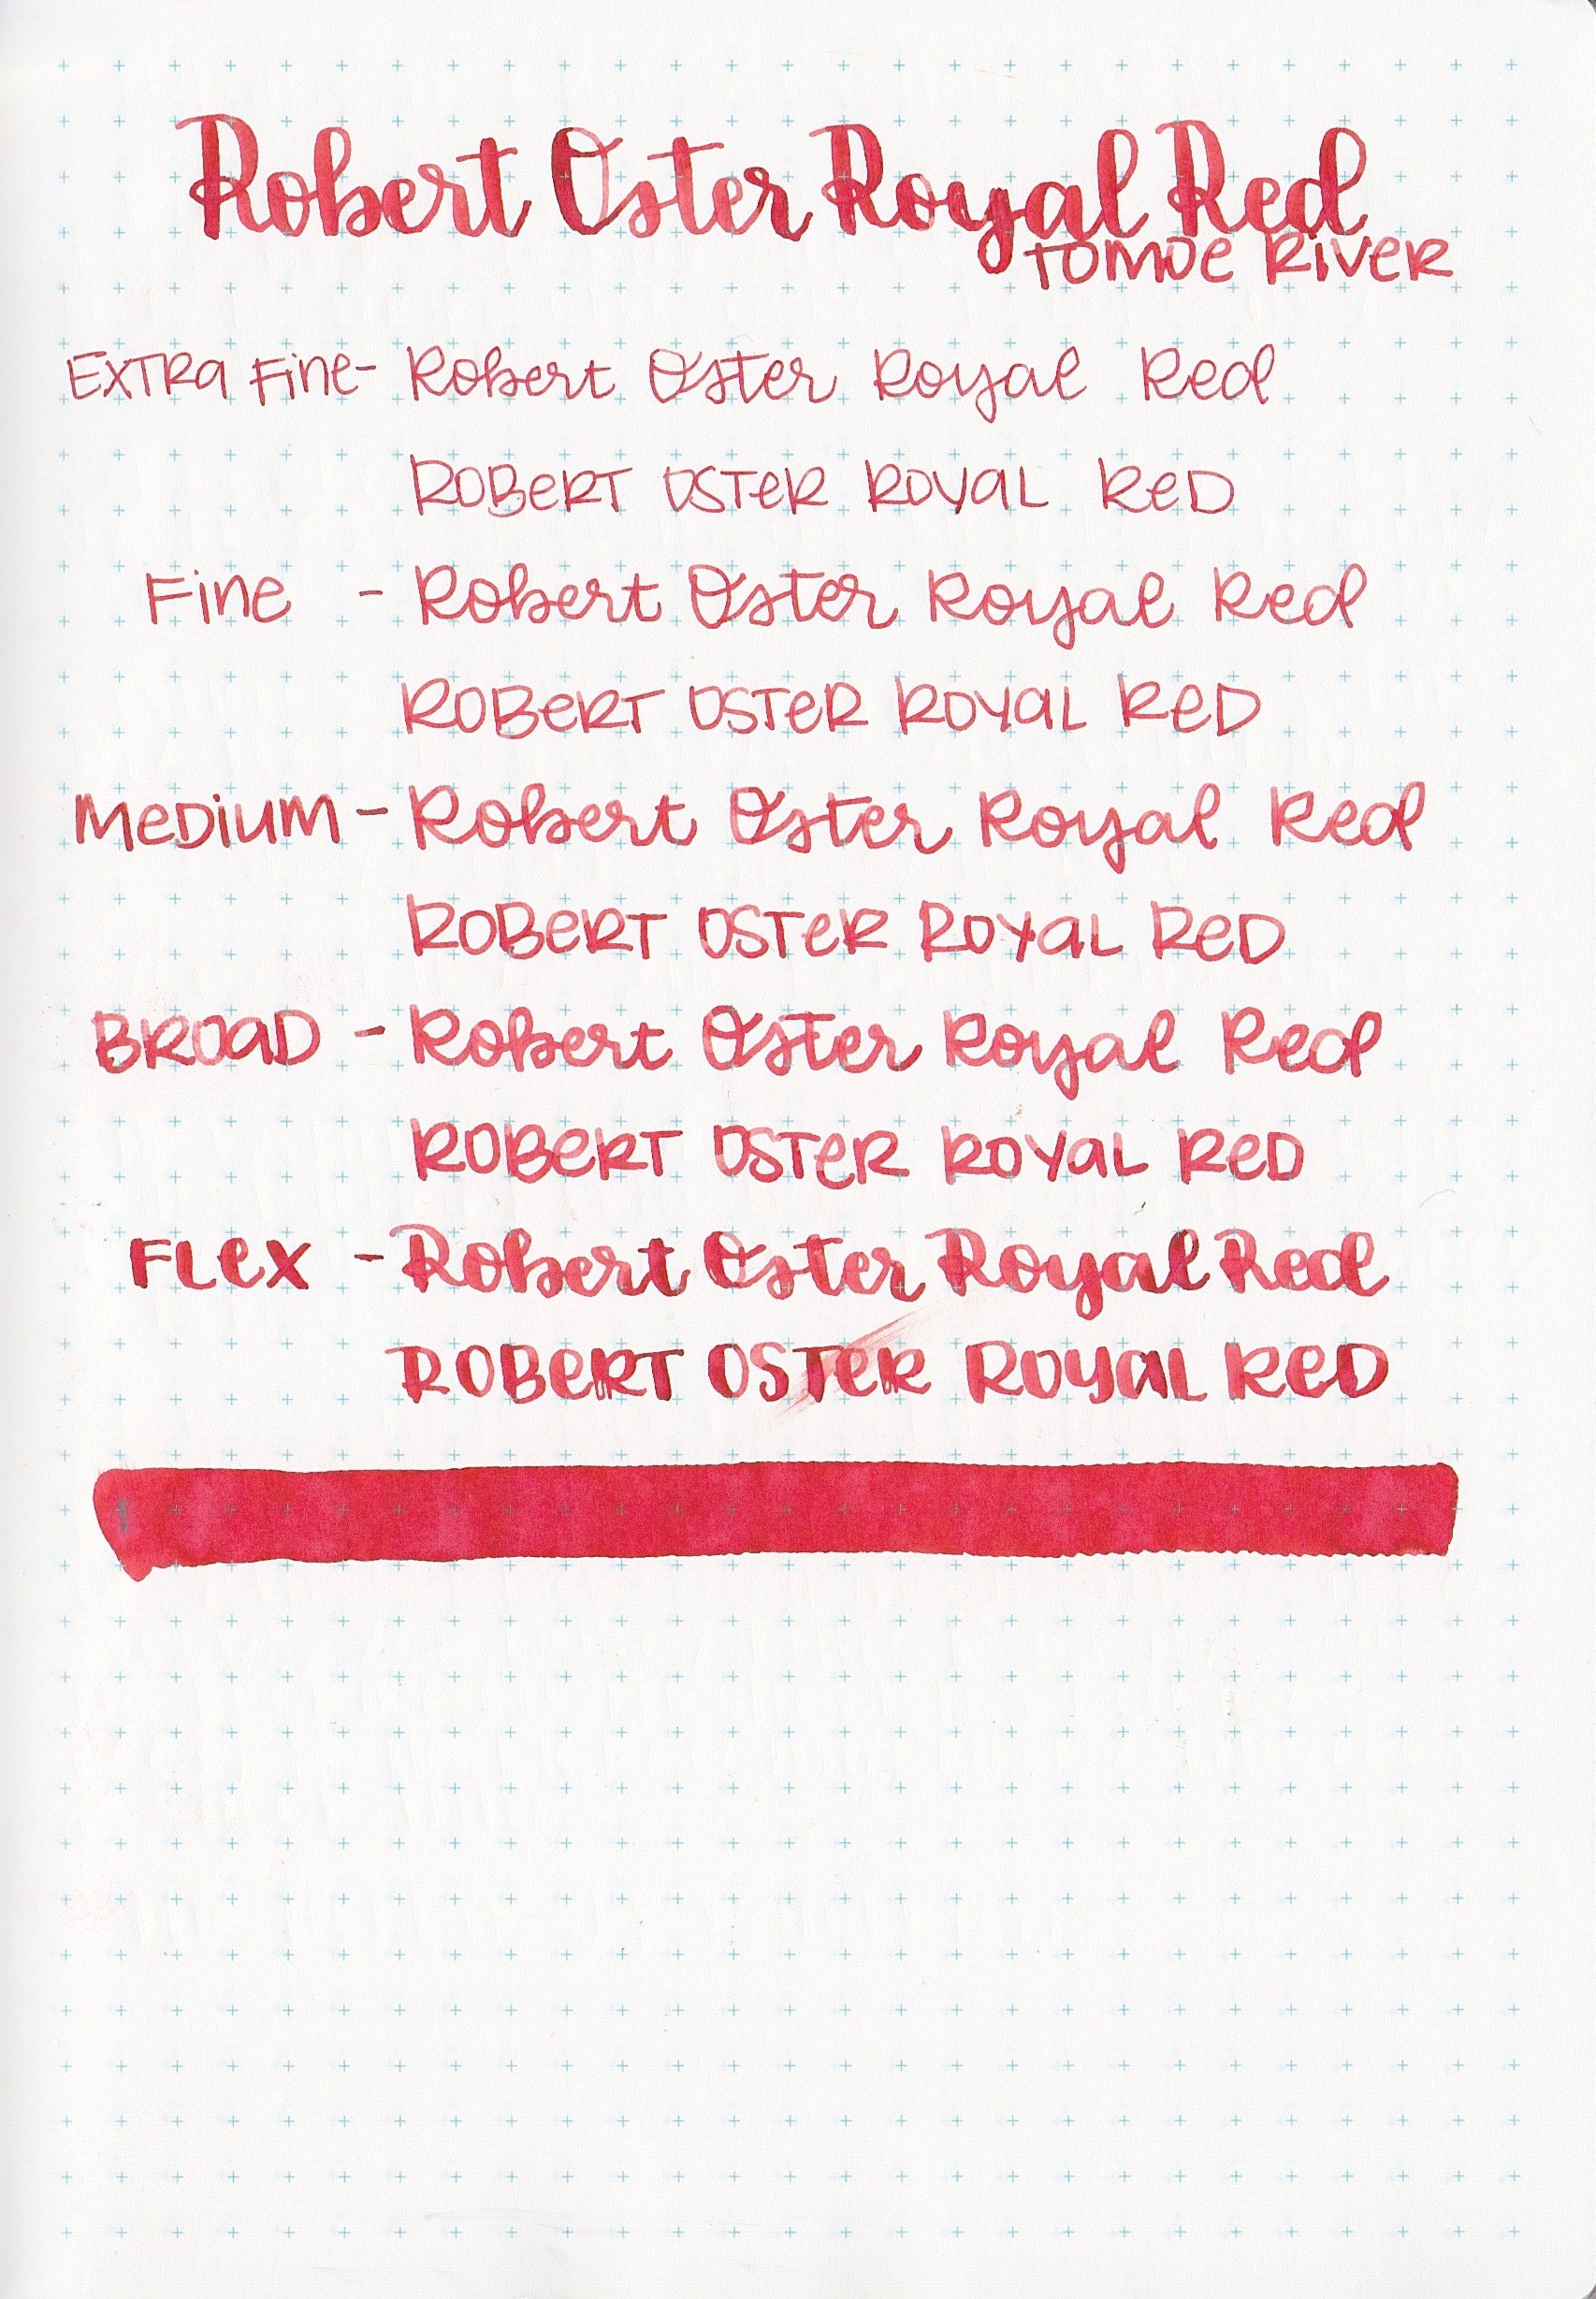 Robert Oster Royal Red
TOMOE RIVER
EXTRA FINE- Robert Oster Royal Red
ROBERT OSTER ROYAL RED
FINE - Robert Oster Royal Red
ROBERT OSTER ROYAL RED
MEDIUM - Robert Oster Royal Red
ROBERT OSTER ROYAL RED
BROAD - Robert Oster Royal Red
ROBERT OSTER ROYAL RED
FLEX - Robert Oster Royal Red
ROBERT OSTER ROYAL RED